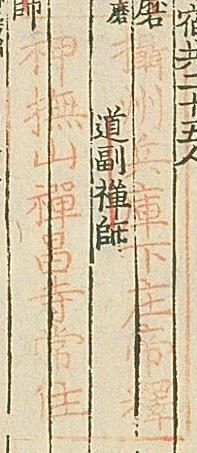 宿共二十五人
磨
攝州兵庫下庄帝釋
磨
道副禪師
神撫山禪昌寺常住
師